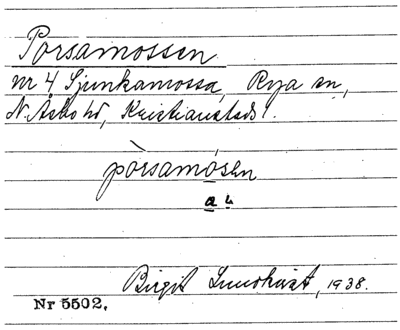 Porsamossen
nr 4 Sjunkamossa, Rya sn,
N. Åsbo hd, Kristianstads l.
pòrsamósən
a 4
Birgit Lundkvist, 1938.
Nr 5502.